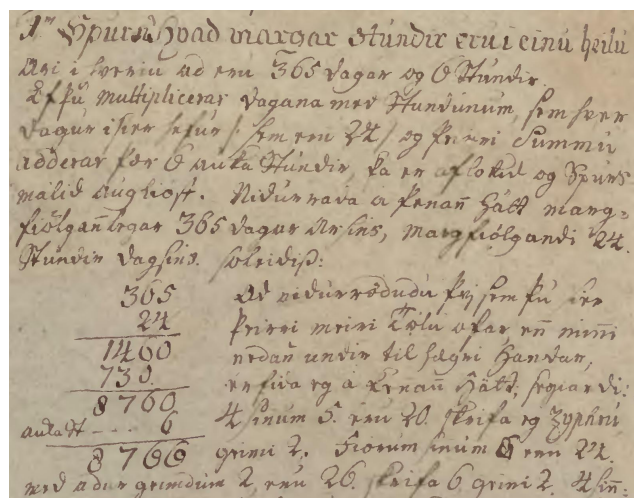 1ta Spurn. Hvad margar stundir eru i einu heilu
Ari i hveriu ad eru 365 dagar og 6 Stundir.
Ef þu multiplicerar dagana med Stundunum, sem hver
dagur i sier hefur /: sem eru 24 / og þeirri Summu
adderar þær 6 auka Stundir, þa er aflokid og Spurs
malid augliost. Nidurrada a þenan Hátt marg-
fiölganlegar 365 dagar Arsins, margfiölgandi 24.
Stundir dagsins. soleidis:
365 Ad nidurrödudu þvi sem þu sier
24 þeirri meiri Tölu ofar en minni
1460 nedan undir til hægri Handar,
730. en sida eg a þenan Hátt, segiandi:
8760 4 sinum 5. eru 20. skrifa eg Zyphru
aukast --- 6 geimi 2. Fiorum sinum 6 eru 24.
8766 med adur geimdum 2, eru 26. skrifa 6 geimi 2. 4 sin: